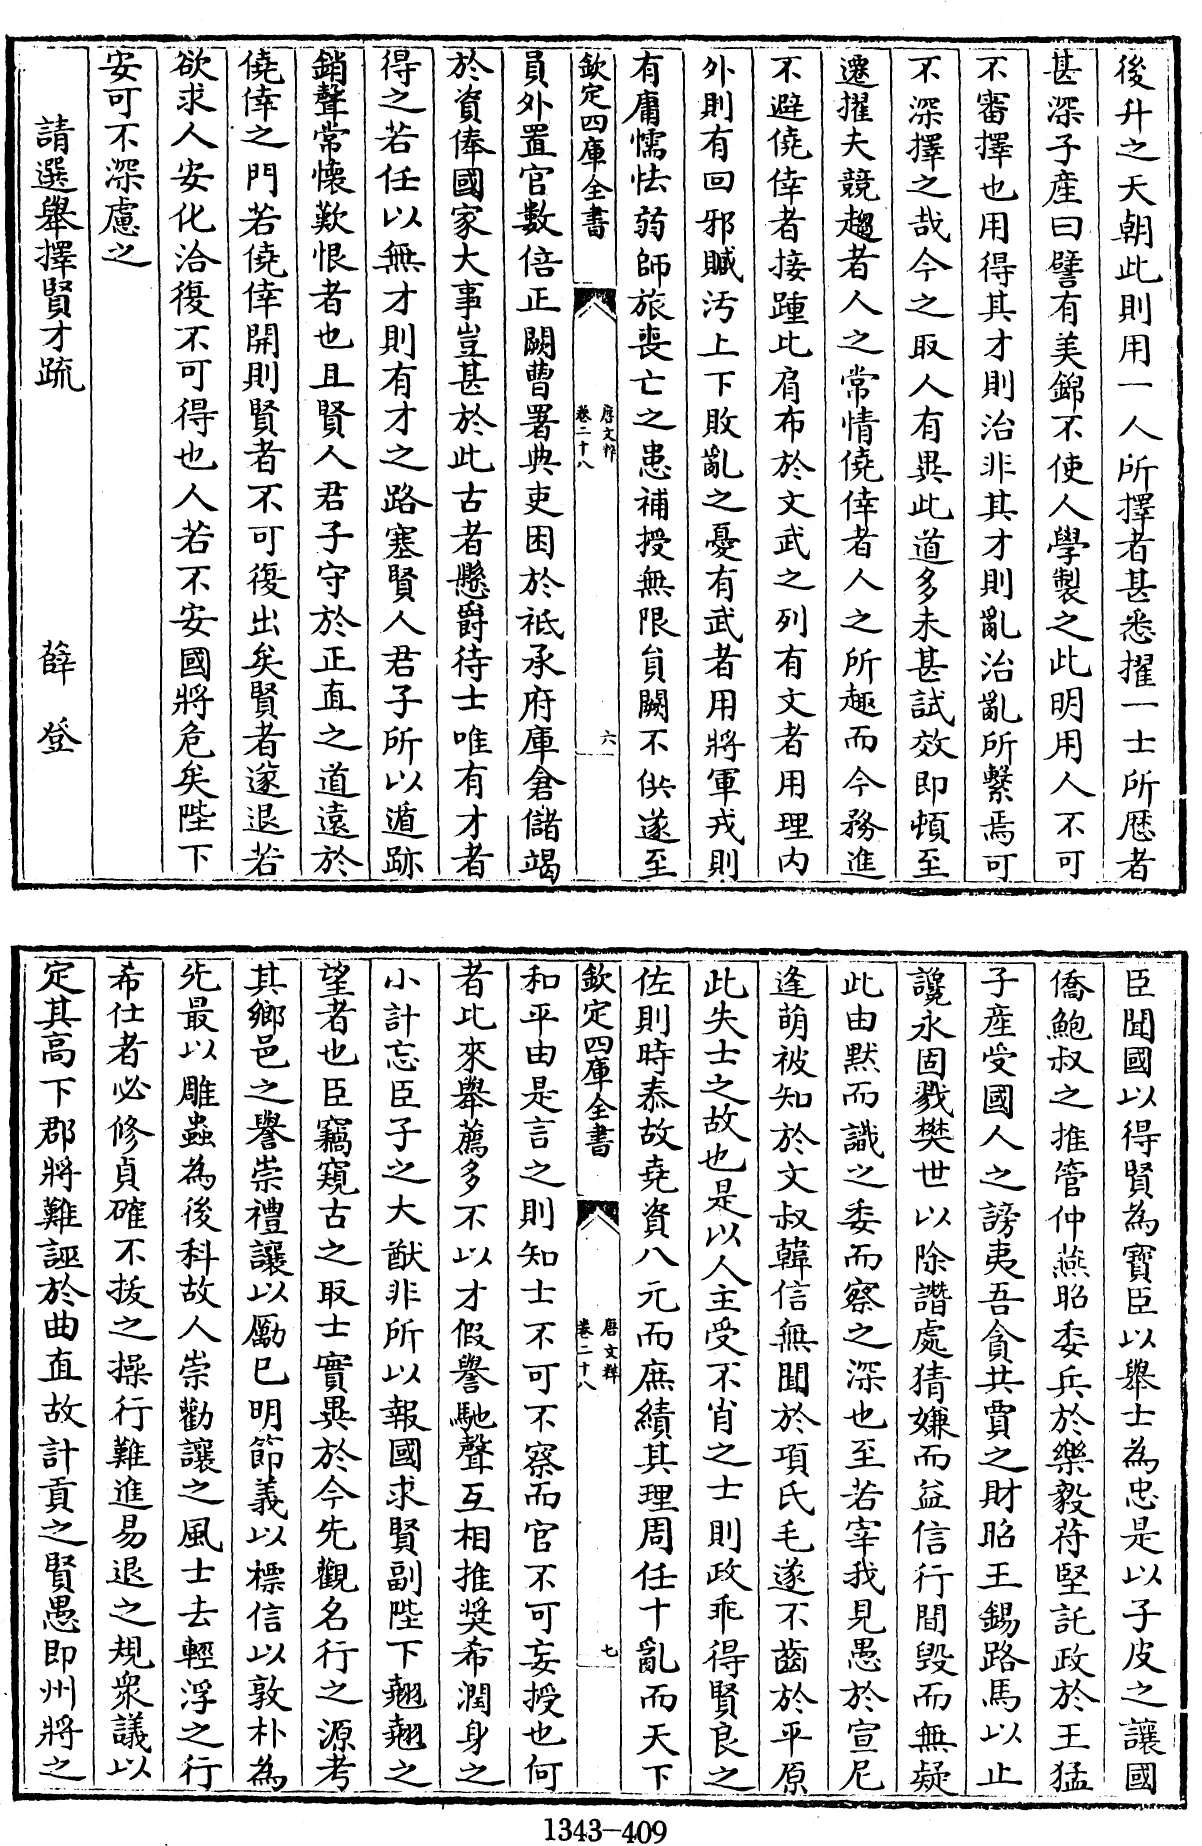 後升之天朝此則用一人所擇者甚悉擢一士所歴者
甚深子産曰譬有美錦不使人學製之此明用人不可
不審擇也用得其才則治非其才則亂治亂所繫焉可
不深擇之哉今之取人有異此道多未甚試效即頓至
遷擢夫競趨者人之常情僥倖者人之所趣而今務進
不避僥倖者接踵比肩布於文武之列有文者用理内
外則有回邪贓汚上下敗亂之憂有武者用將軍戎則
有庸懦怯弱師旅喪亡之患補授無限負闕不供遂至
欽定四庫全書
唐文粹
卷二十八
六
員外置官數倍正闕曹署典吏困於祗承府庫倉儲竭
於資俸國家大事豈甚於此古者懸爵待士唯有才者
得之若任以無才則有才之路塞賢人君子所以遁跡
銷聲常懐歎恨者也且賢人君子守於正直之道遠於
僥倖之門若僥倖開則賢者不可復出矣賢者遂退若
欲求人安化洽復不可得也人若不安國將危矣陛下
安可不深慮之
請選舉擇賢才疏
薛登
臣聞國以得賢為寳臣以舉士為忠是以子皮之讓國
僑鮑叔之推管仲燕昭委兵於樂毅苻堅託政於王猛
子産受國人之謗夷吾貪共賈之財昭王錫路馬以止
讒永固戮樊世以除譖處猜嫌而益信行間毀而無疑
此由黙而識之委而察之深也至若宰我見愚於宣尼
逢萌被知於文叔韓信無聞於項氏毛遂不齒於平原
此失士之故也是以人主受不肖之士則政乖得賢良之
佐則時泰故堯資八元而庶績其理周任十亂而天下
欽定四庫全書
唐文粹
卷二十八
七
和平由是言之則知士不可不察而官不可妄授也何
者比來舉薦多不以才假譽馳聲互相推奬希潤身之
小計忘臣子之大猷非所以報國求賢副陛下翹翹之
望者也臣竊窺古之取士實異於今先觀名行之源考
其鄉邑之譽崇禮讓以勵已明節義以標信以敦朴為
先最以雕蟲為後科故人崇勸讓之風士去輕浮之行
希仕者必修貞確不拔之操行難進易退之規衆議以
定其高下郡將難誣於曲直故計貢之賢愚即州將之
1343-409